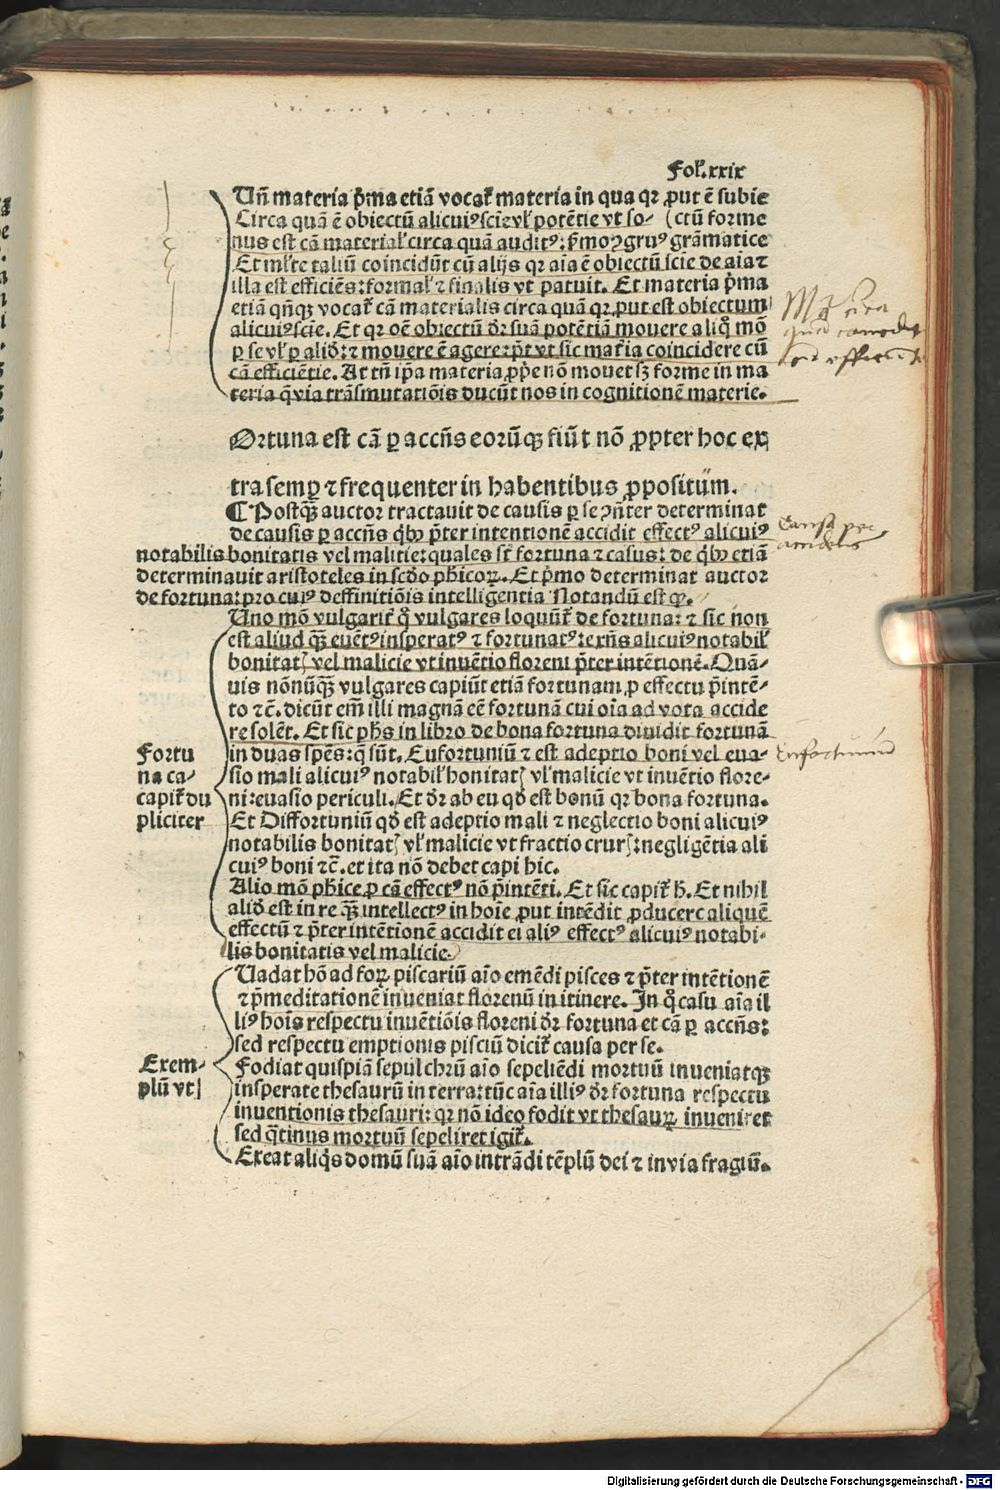 Fol.xxix
Uñ materia p̄ma etiā vocaꝉ materia in qua qꝛ ꝓut ē subie
Circa quā ē obiectū alicuiꝰ scie vꝉ potētie vt so- (ctū forme
nus est cā materiaꝉ circa quā auditꝰ: p̄mo ꝯgruꝰ grāmatice
Et mꝉte taliū coincidūt cū alijs qꝛ aīa ē obiectū scie de aīa ⁊
illa est efficiēs: formaꝉ ⁊ finalis vt patuit. Et materia p̄ma
etiā qñqꝫ vocaꝉ cā materialis circa quā qꝛ ꝓut est obiectum
alicuiꝰ scīe. Et qꝛ oē obiectū dꝛ suā potētiā mouere aliqͦ mō
ꝑ se vꝉ ꝑ aliđ: ⁊ mouere ē agere: pꝫ vt sic mat̄ia coincidere cū
cā efficiētie. At tñ ip̄a materia ꝓpe nō mouet sꝫ forme in ma
teria q̄ via trāsmutatiōis ducūt nos in cognitionē materie.
Ortuna est cā ꝑ accñs eorūqꝫ fiūt nō ꝓpter hoc ex
tra semꝑ ⁊ frequenter in habentibus ꝓpositūm.
¶ Postqꝫ auctor tractauit de causis ꝑ se ꝯñter determinat
de causis ꝑ accñs qͥbꝰ p̄ter intentionē accidit effectꝰ alicuiꝰ
notabilis bonitatis vel malitie: quales st̄ fortuna ⁊ casus: de qͥbꝰ etiā
determinauit aristoteles in scđo phīcoꝝ. Et p̄mo determinat auctor
de fortuna: pro cuiꝰ deffinitiōis intelligentia Notandū est qꝫ.
Uno mō vulgarit̄ qͦ vulgares loquūt̄ de fortuna: ⁊ sic non
est aliud qꝫ euētꝰ insperatꝰ ⁊ fortunatꝰ: exñs alicuiꝰ notabiꝉ
bonitatꝭ vel malicie vt inuētio floreni p̄ter intētionē. Quā-
uis nōnūqꝫ vulgares capiūt etiā fortunam ꝓ effectu p̄intē-
to ⁊c̄. dicūt em̄ illi magnā eē fortunā cui oīa ad vota accide
re solēt. Et sic ph̄s in libro de bona fortuna diuidit fortunā
in duas spēs: q̄ sūt. Eufortuniū ⁊ est adeptio boni vel eua-
sio mali alicuiꝰ notabiꝉ bonitatꝭ vꝉ malicie vt inuētio flore-
ni: euasio periculi. Et dꝛ ab eu qđ est bonū qꝛ bona fortuna.
Et Diffortuniū qđ est adeptio mali ⁊ neglectio boni alicuiꝰ
notabilis bonitatꝭ vꝉ malicie vt fractio crurꝭ: negligētia ali
cuiꝰ boni ⁊c̄. et ita nō debet capi hic.
Fortu
na ca-
capit̄ du
pliciter
Alio mō phīce ꝓ cā effectꝰ nō p̄intēti. Et sic capit̄ h̄. Et nihil
aliđ est in re qꝫ intellectꝰ in hoīe ꝓut intēdit ꝓducere aliquē
effectū ⁊ p̄ter intētionē accidit ei aliꝰ effectꝰ alicuiꝰ notabi-
lis bonitatis vel malicie.
Uadat hō ad foꝝ piscariū aīo emēdi pisces ⁊ p̄ter intētionē
⁊ p̄meditationē inueniat florenū in itinere. In qͦ casu aīa il
liꝰ hoīs respectu inuētiōis floreni dꝛ fortuna et cā ꝑ accñs:
sed respectu emptionis pisciū dicit̄ causa per se.
Exem-
plū vt
Fodiat quispiā sepulchrū aīo sepeliēdi mortuū inueniatqꝫ
insperate thesaurū in terra: tūc aīa illiꝰ dꝛ fortuna respectu
inuentionis thesauri: qꝛ nō ideo fodit vt thesauꝝ inueniret
sed q̄tinus mortuū sepeliret igit̄.
Exeat aliqͥs domū suā aīo intrādi tēplū dei ⁊ in via fragiū.
causa per
accidens
Eufortunium
Digitalisierung gefördert durch die Deutsche Forschungsgemeinschaft - DFG